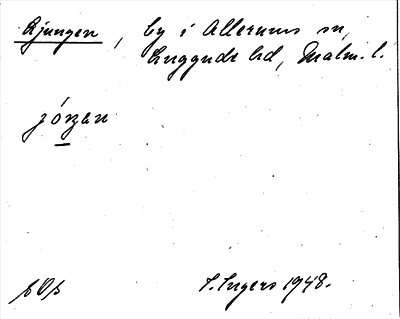 Ljungen, by i Allerums sn,
Luggude hd, Malm. l.
jóŋen
I. Ingers 1948.